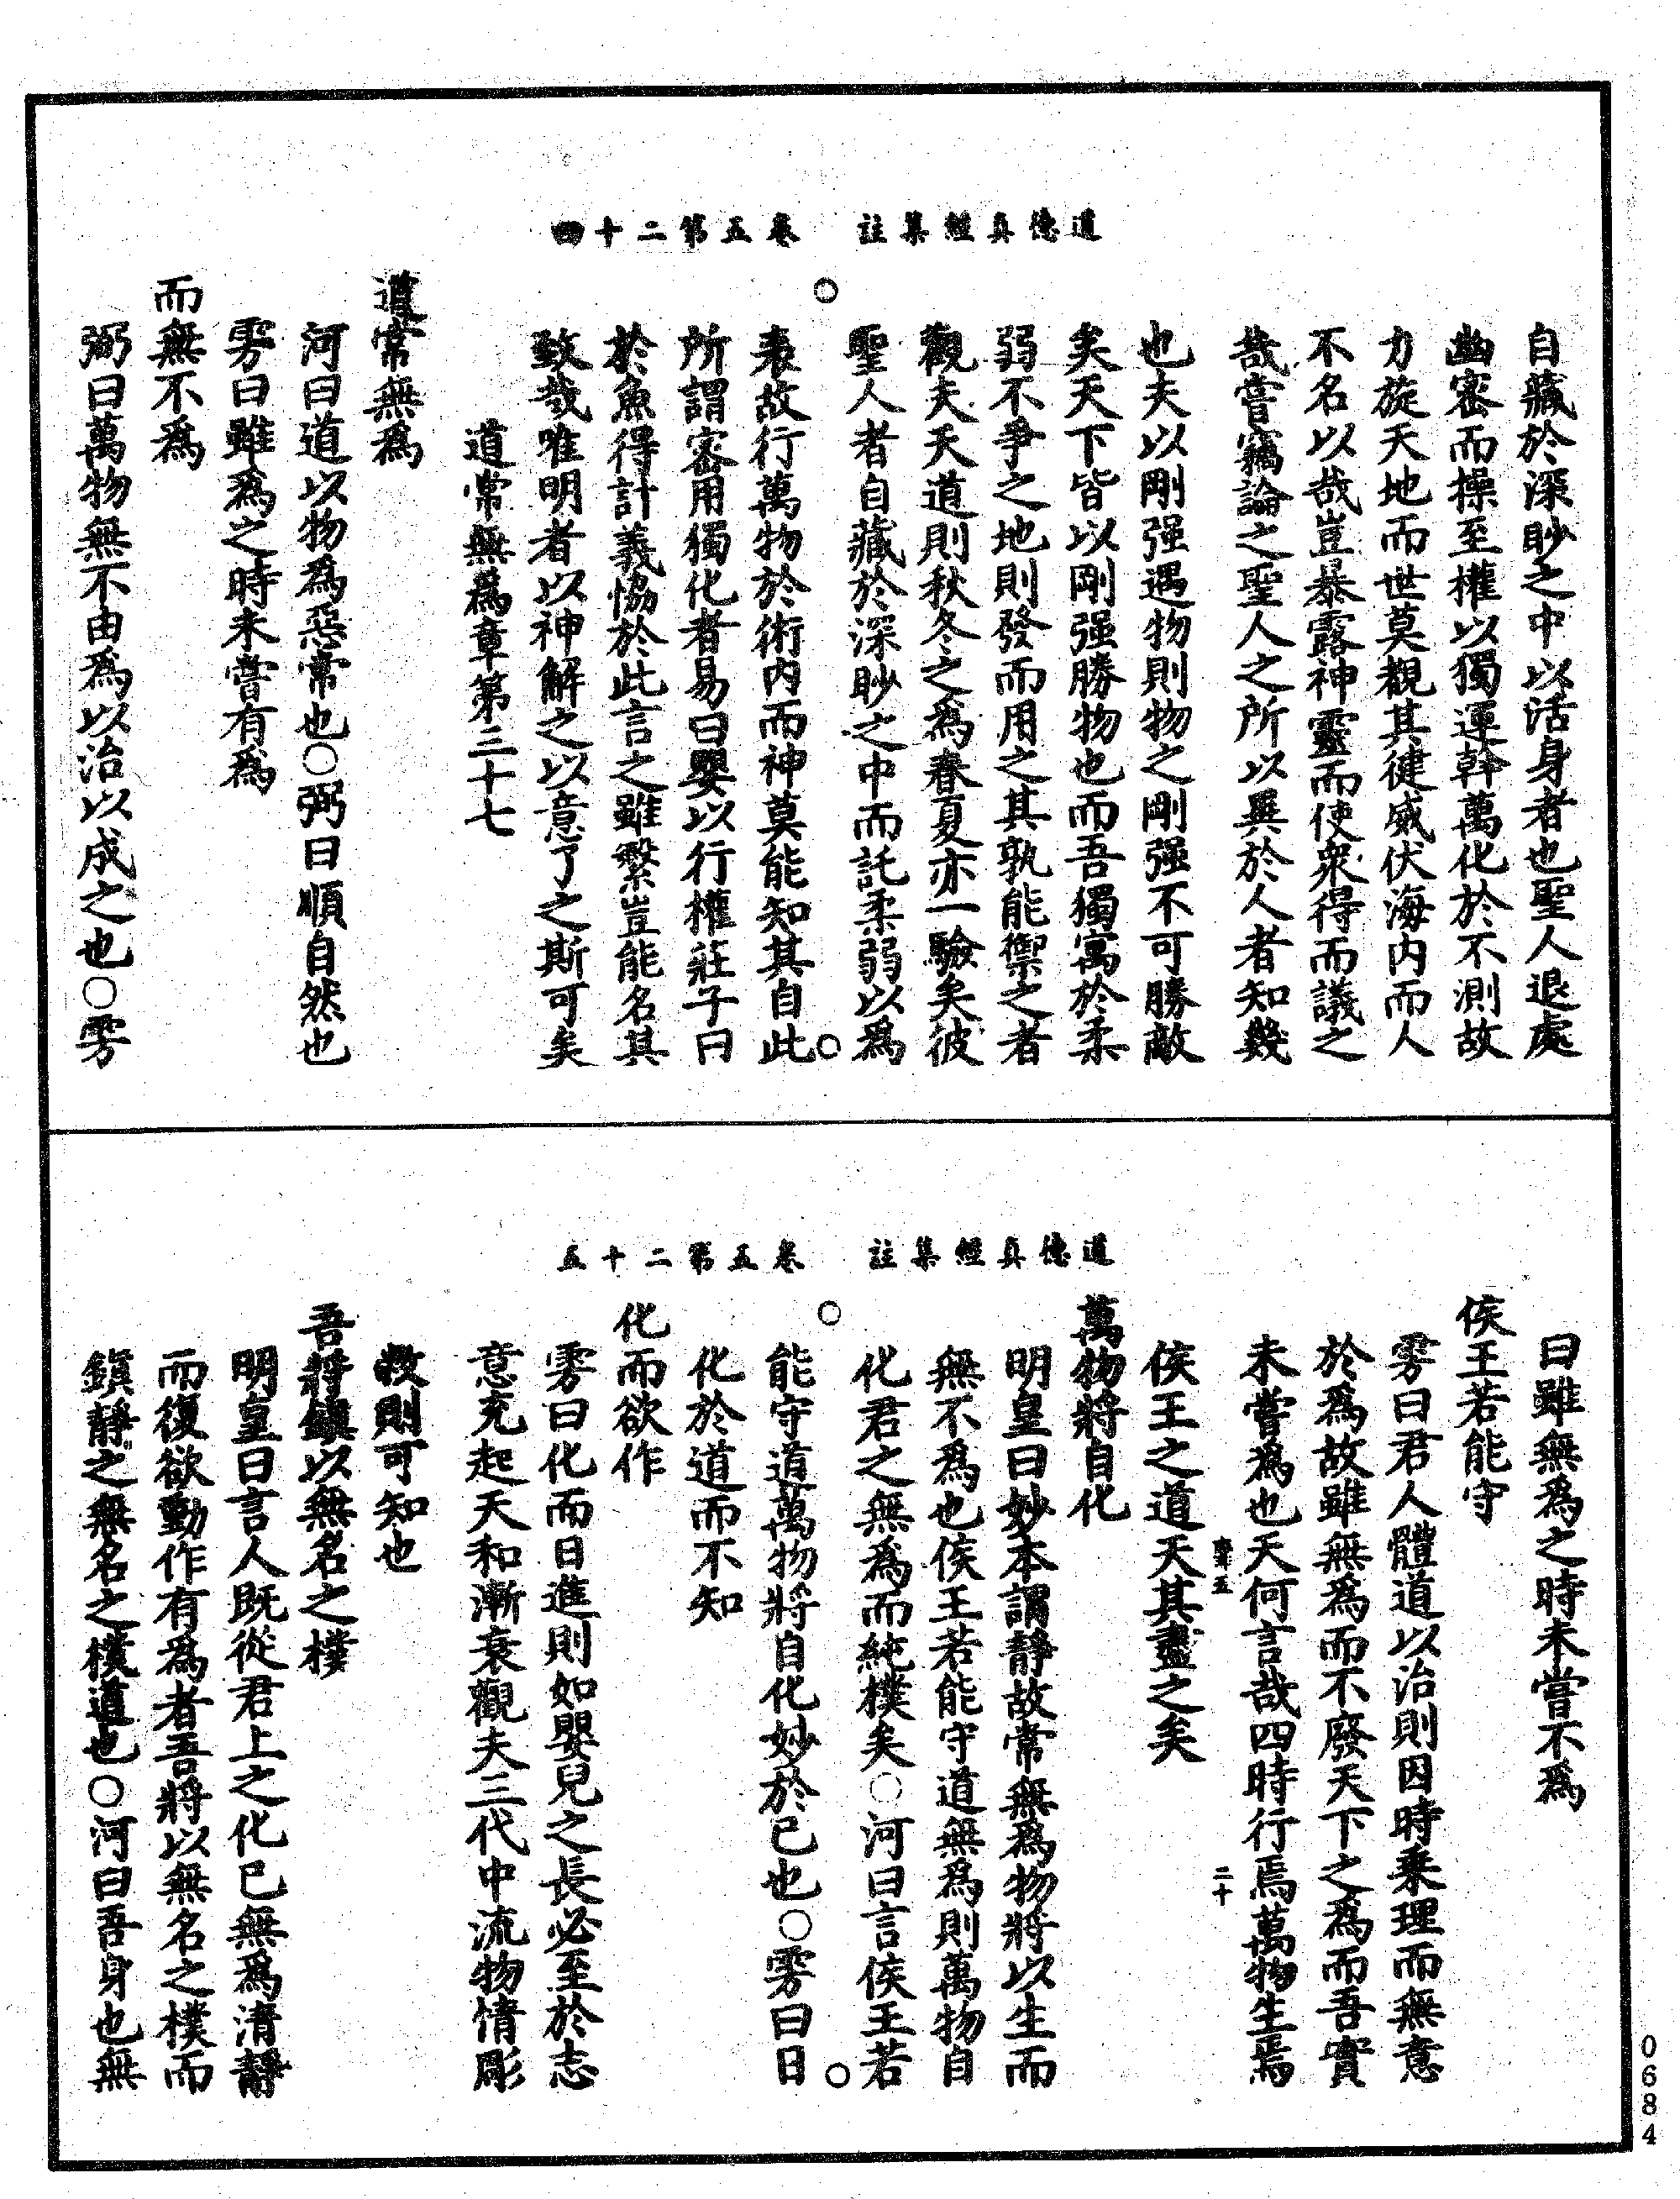 道德真經集註　卷五第二十四
自藏於深眇之中以活身者也聖人退處
幽密而操至權以獨運斡萬化於不測故
力旋天地而世莫覩其健威伏海内而人
不名以哉豈暴露神靈而使衆得而議之
哉嘗竊論之聖人之所以異於人者知幾
也夫以剛强遇物則物之剛强不可勝敵
矣天下皆以剛强勝物也而吾獨寓於柔
弱不爭之地則發而用之其孰能禦之者
觀夫天道則秋冬之爲春夏亦一驗矣彼
聖人者自藏於深眇之中而託柔弱以爲
表故行萬物於術内而神莫能知其自此
所謂密用獨化者易曰巽以行權莊子曰
於魚得計義恊於此言之雖繫豈能名其
致哉唯明者以神解之以意了之斯可矣
道常無爲章第三十七
道常無爲
河曰道以物爲惡常也○弼曰順自然也
雱曰雖爲之時未嘗有爲
而無不爲
弼曰萬物無不由爲以治以成之也○雱
道德真經集註　卷五第二十五
曰雖無爲之時未嘗不爲
侯王若能守
雱曰君人體道以治則因時乗理而無意
於爲故雖無爲而不廢天下之爲而吾實
未嘗爲也天何言哉四時行焉萬物生焉
二十
侯王之道天其盡之矣
萬物將自化
明皇曰妙本謂靜故常無爲物將以生而
無不爲也侯王若能守道無爲則萬物自
化君之無爲而純樸矣○河曰言侯王若
能守道萬物將自化妙於已也○雱曰日
化於道而不知
化而欲作
雱曰化而日進則如嬰兒之長必至於志
意充起天和漸衰觀夫三代中流物情彫
敝則可知也
吾將鎮以無名之樸
明皇曰言人既從君上之化已無爲清靜
而復欲動作有爲者吾將以無名之樸而
鎮靜之無名之樸道也○河曰吾身也無
0684